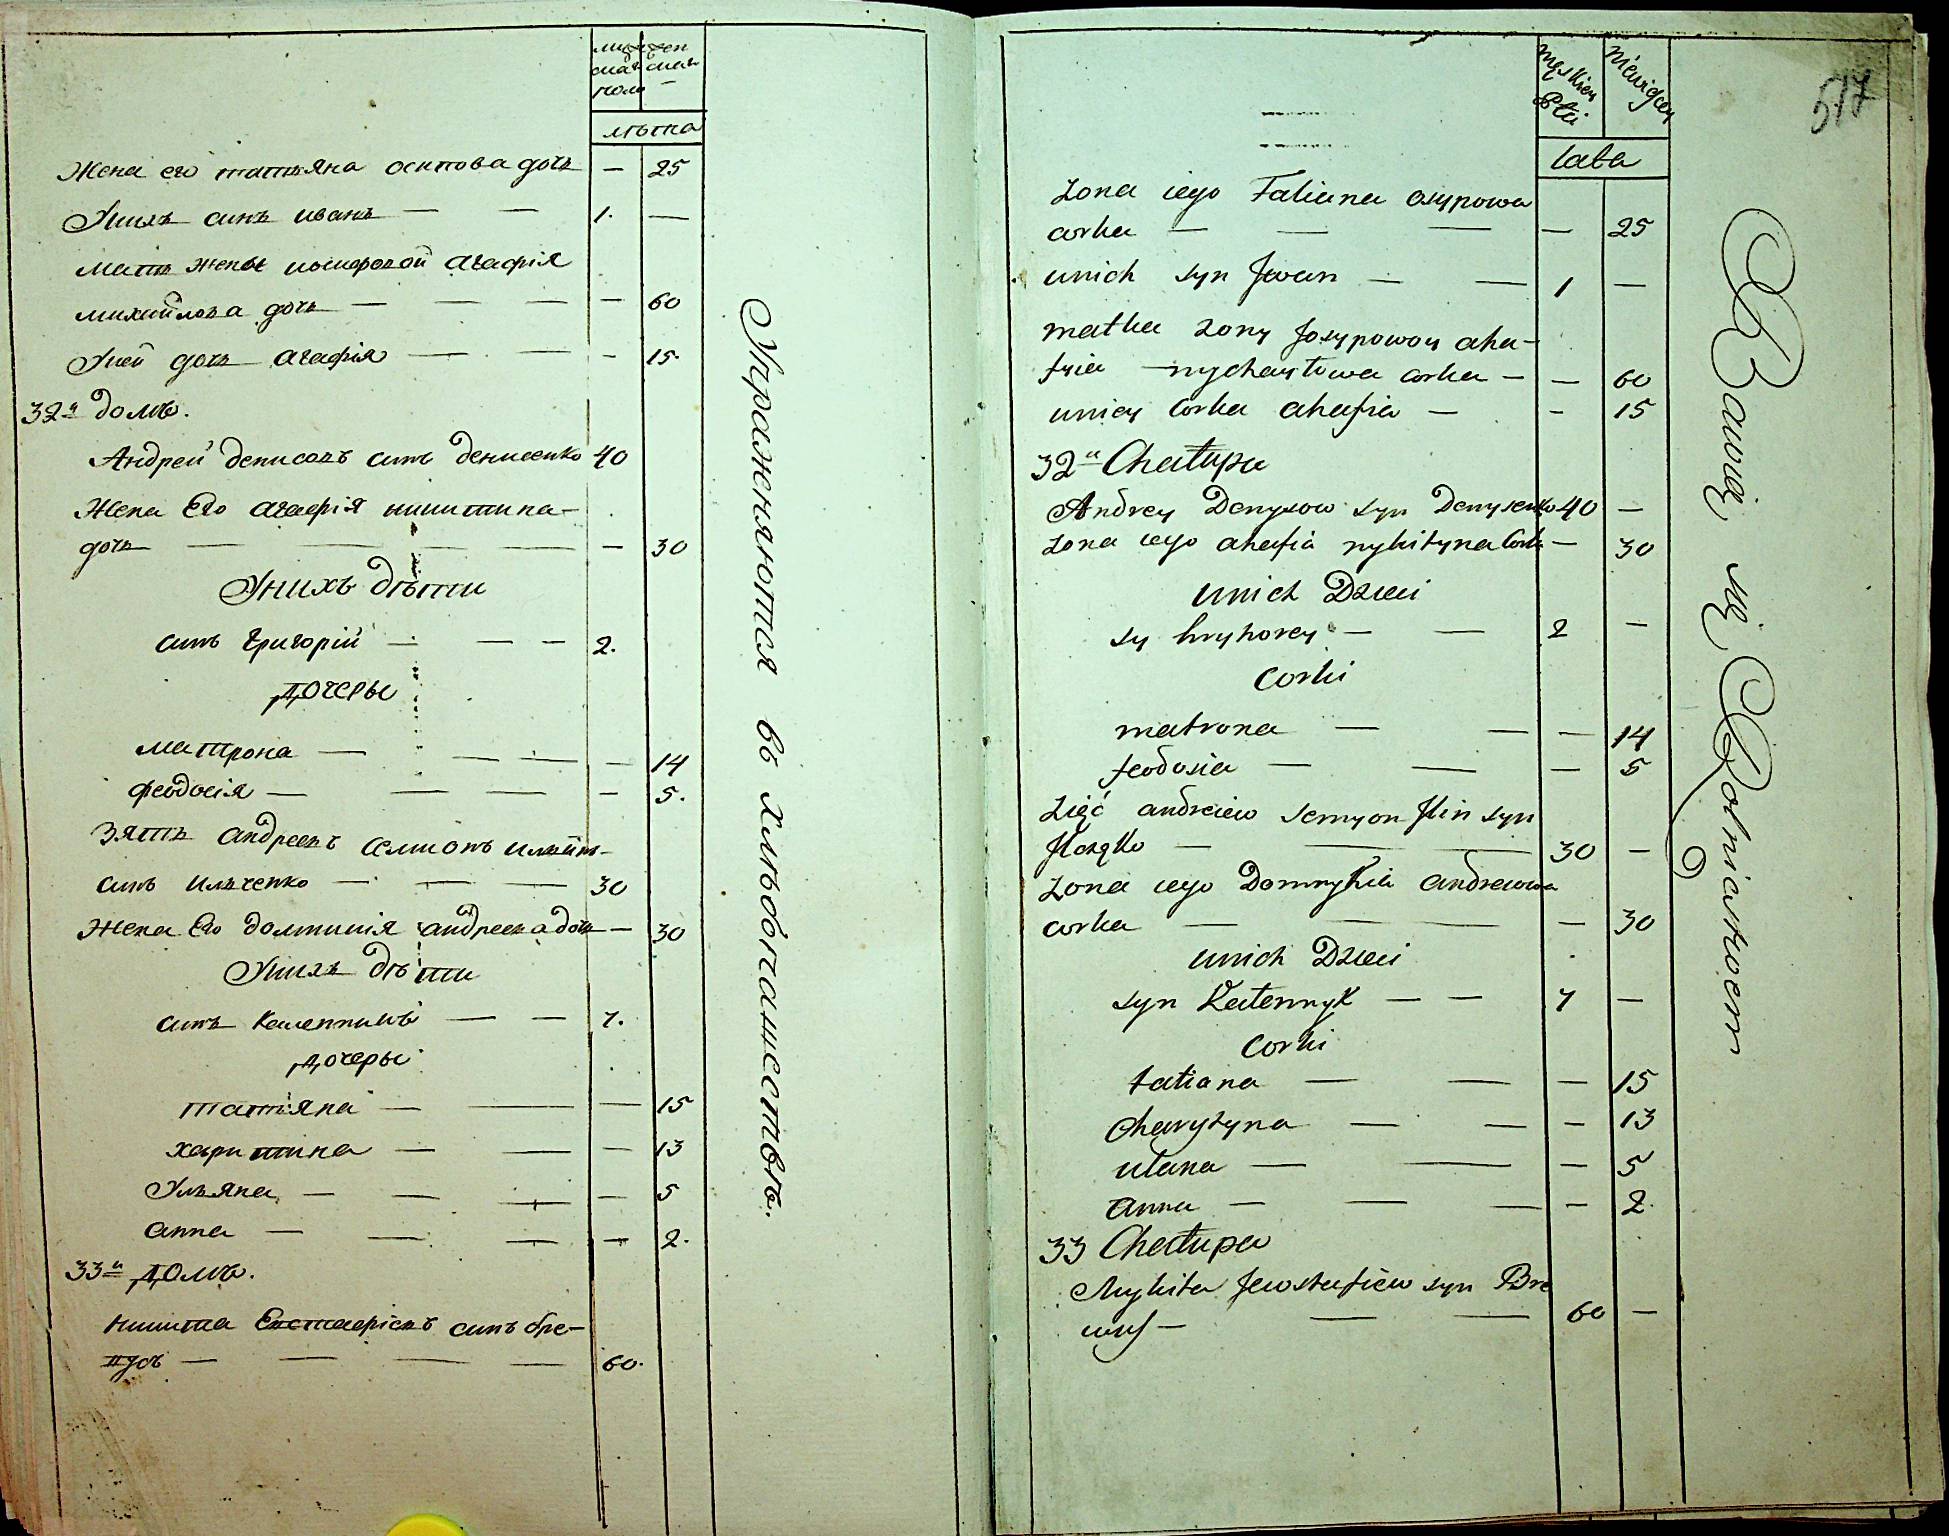 муж женс
скаго скаго
пола —
лѣта
Жена его татьяна осипова дочь — 25
Унихъ синъ иванъ — — 1. —
мать жены иосиповой агафія
михайлова дочь — — — — 60
Уней дочь агафія — — — 15.
32й домъ.
Андрей денисовъ синъ денисенко 40
Жена Его агафія никитина-
дочь — — — — — 30
Унихъ дѣти
синъ григорій — — — 2.
дочеры
матрона — — — — 14
феодосія — — — — 5.
зять андреевъ семионъ ильин-
синъ ильченко — — — 30
Жена Его домникія андреева дочь — 30
Унихъ дѣти
синъ каленникъ — — 7.
дочеры
татіяна — — — 15
харитина — — — 13
Ульяна — — — — 5
анна — — — — 2.
33й домъ.
никита Евстафіевъ синъ бре-
усъ — — — — 60.
Упражняются въ хлѣбопашествѣ.
męskiey Płci
niewieścey
lata
517
żona iego Taliana osypowa
corka — — — — 25
unich syn Jwan — — 1 —
matka zony Josypowoy aha-
fyia mychayłowa corka — — 60
uniey Corka ahafia — - 15
32a Chałupa
Andrey Denysow syn Denysenko 40 —
żona iego ahafia nykityna Cork — 30
unich Dzieci
sy hryhorey — — 2 —
Corki
matrona — — — 14
feodosia — — — 5
Zięć andreiew semyon Jlin syn
— — — 30 —
żona iego Domnykia andreiowa
corka — — — 30
unich Dzieci
syn Kalennyk — — 7 —
Corki
tatiana — — — 15
Charytyna — — — 13
ulana — — — 5
anna — — — — 2.
33 Chałupa
Mykita Jewstafiew syn Bre
wus — — — 60 —
Bawią się Rolnictwem